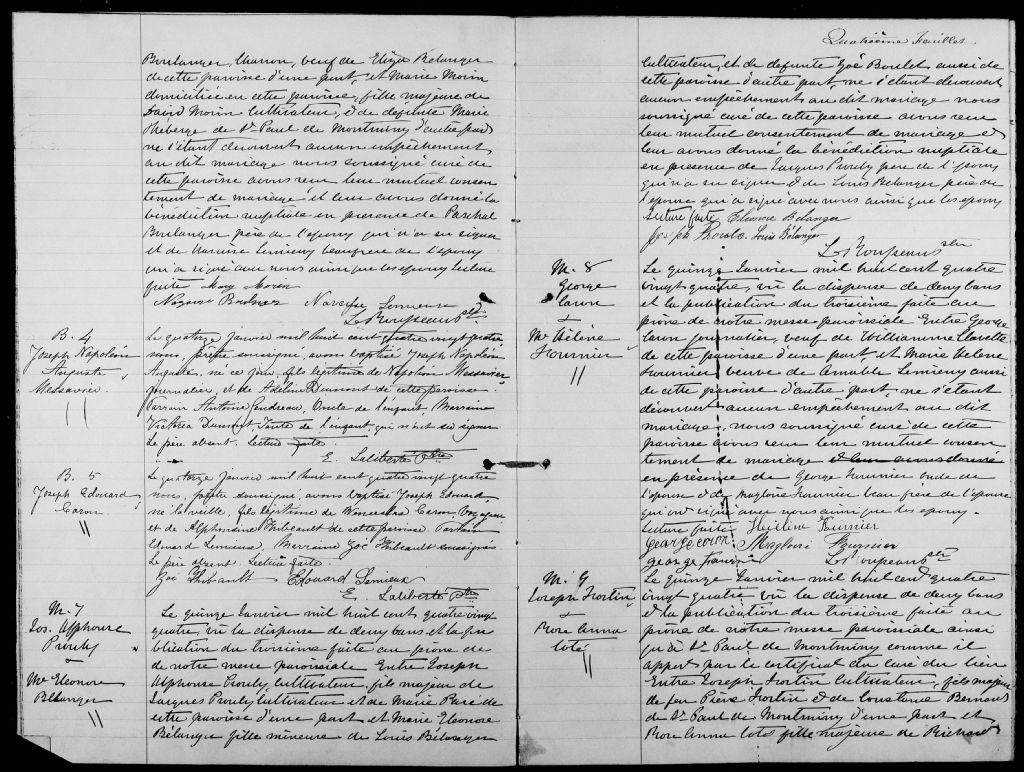 Boulanger, Charron, veuf de Eliza Belanger
de cette paroisse d'une part, et Marie Morin
domiciliée en cette paroisse, fille majeure de
David Morin Cultivateur, & de defunte Marie
Theberge de St Paul de Montminy d'autre part
ne s'étant découvert aucun empêchement
au dit mariage nous soussigné curé de
cette paroisse avons reçu leur mutuel consen
tement de mariage et leur avons donné la
bénédiction nuptiale en presence de Paschal
Boulanger père de l'epoux qui n'a su signer
et de Narcisse Lemieux beaufrere de l'epoux
qui a signé avec nous ainsi que les epoux Lecture
faite Mary Morin
Narcisse Lemieux
B. 4
Joseph Napoléon
Auguste
Messavier
Le quatorze Janvier mil huit cent quatre vingt quatre
nous, prêtre soussigné, avons baptisé Joseph Napoléon
Auguste, né ce jour, fils légitime de Napoléon Messavier
journalier, et de Adeline Dumont de cette paroisse.
Parrain Antoine Gendreau, Oncle de l'enfant, Marraine
Victoria Dumont Tante de l'enfant, qui n'ont su signer
Le père absent. Lecture faite.
E. Laliberté Ptre
B. 5
Joseph Edouard
Caron
Le quatorze Janvier mil huit cent quatre vingt quatre
nous, prêtre soussigné, avons baptisé Joseph Edouard,
né la veille, fils légitime de Caron Voyageur
et de Alphonsine Thibeault de cette paroisse Parrain
Edouard Lemieux, Marraine Zoé Thibeault soussignés
Le père absent. Lecture faite.
Zoé Thibault Edouard Lemieux
E. Laliberté Ptre
M. 7
Jos. Alphonse
Proulx
&
Me Eleonore
Bélanger
Le quinze Janvier mil huit cent quatre vingt
quatre, vû la dispense de deux bans et la pu
blication du troisième faite au prône de
de notre messe paroissiale Entre Joseph
Alphonse Proulx, Cultivateur, fils majeur de
Jacques Proulx, Cultivateur et de Marie Paré de
cette paroisse d'une part et Marie Eleonore
Bélanger fille mineure de Louis Bélanger
Quatrième Feuillet
Cultivateur, et de defunte Zoé Boulet aussi de
cette paroisse d'autre part, ne s'étant découvert
aucun empêchement au dit mariage nous
soussigné curé de cette paroisse avons reçu
leur mutuel consentement de mariage &
leur avons donné la bénédiction nuptiale
en presence de Jacques Proulx père de l'epoux
qui n'a su signer & de Louis Bélanger père de
l'epouse qui a signé avec nous ainsi que les epoux
Lecture faite Eleonore Bélanger
Joseph Proulx Louis Bélanger
M. 8
George
Caron
&
Me Hélène
Fournier
Le quinze Janvier mil huit cent quatre
vingt quatre, vû la dispense de deux bans
et la publication du troisième faite au
prône de notre messe paroissiale Entre George
Caron journalier, veuf de
de cette paroisse d'une part, et Marie Helene
Fournier veuve de Amable Lemieux aussi
de cette paroisse d'autre part, ne s'étant
découvert aucun empêchement au dit
mariage, nous soussigné curé de cette
paroisse avons reçu leur mutuel consen
tement de mariage & leur avons donné
en présence de George Fournier oncle de
l'epouse & de Magloire Fournier beau frère de l'epouse
qui ont signé avec nous ainsi que les epoux.
Lecture faite Hélène Fournier
George caron Magloire Fournier
george
M. 9
Joseph Fortin
&
Rose Anna
Coté
Le quinze Janvier mil huit cent quatre
vingt quatre vû la dispense de deux bans
& la publication du troisième faite au
prône de notre messe paroissiale ainsi
qu'à St Paul de Montminy comme il
appert par le certificat du curé du lieu
Entre Joseph Fortin Cultivateur, fils majeur
de feu Pierre Fortin & de Constance Bernard
de St Paul de Montminy d'une part et
Rose Anna Coté fille majeure de Richard